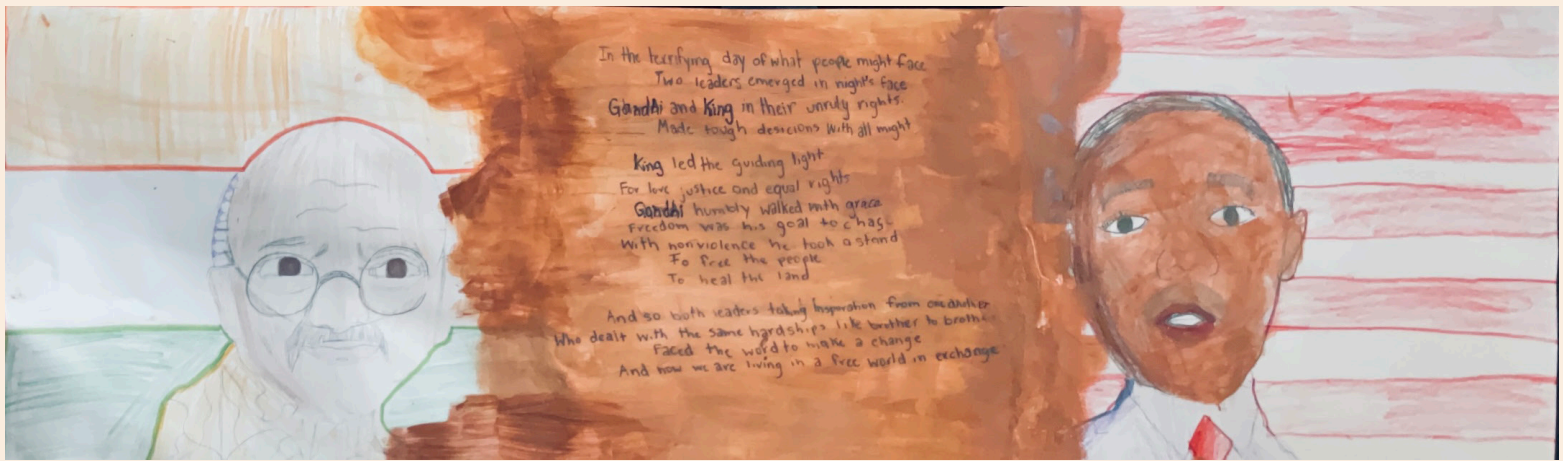 In the terrifying day of what people might face
Two leaders emerged in night's face
Gandhi and King in their unruly rights.
Made tough desicions with all might
King led the guiding light
For love justice and equal rights
Gandhi humbly walked with grace
Freedom was his goal to chas
With nonviolence he took a stand
To free the people
To heal the land
And so both leaders taking Inspiration from oneanother
Who dealt with the same hardships like brother to brother
Faced the word to make a change
And now we are living in a free world in exchange